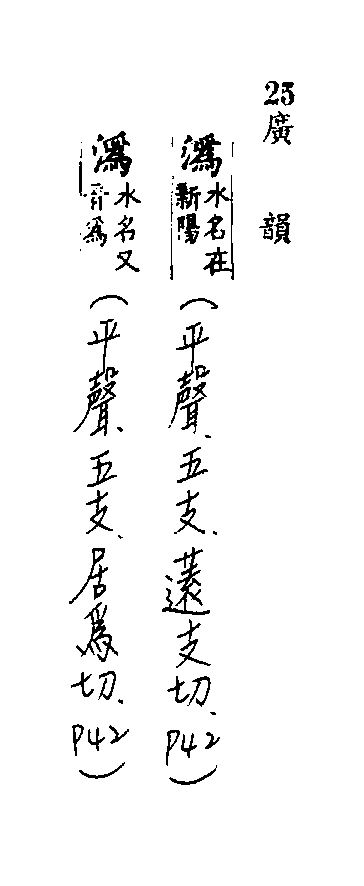 25廣韻
潙水名在新陽(平聲、五支、薳支切、P42)
潙水名又音爲(平聲、五支、居爲切、P42)